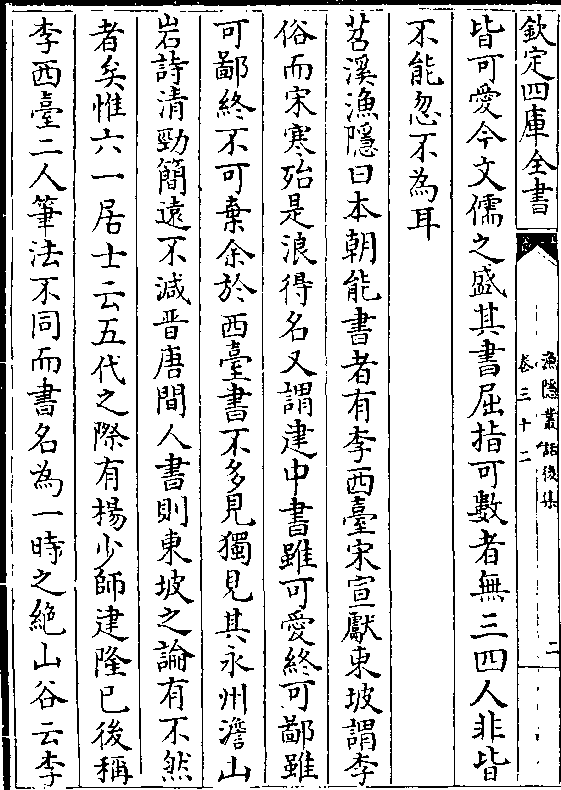 欽定四庫全書
漁隱叢話後集
卷三十二
二
皆可愛今文儒之盛其書屈指可數者無三四人非皆
不能忽不為耳
苕溪漁隱曰本朝能書者有李西臺宋宣獻東坡謂李
俗而宋寒殆是浪得名又謂建中書雖可愛終可鄙雖
可鄙終不可棄余於西臺書不多見獨見其永州澹山
岩詩清勁簡遠不減晉唐間人書則東坡之論有不然
者矣惟六一居士云五代之際有楊少師建隆已後稱
李西臺二人筆法不同而書名為一時之絶山谷云李